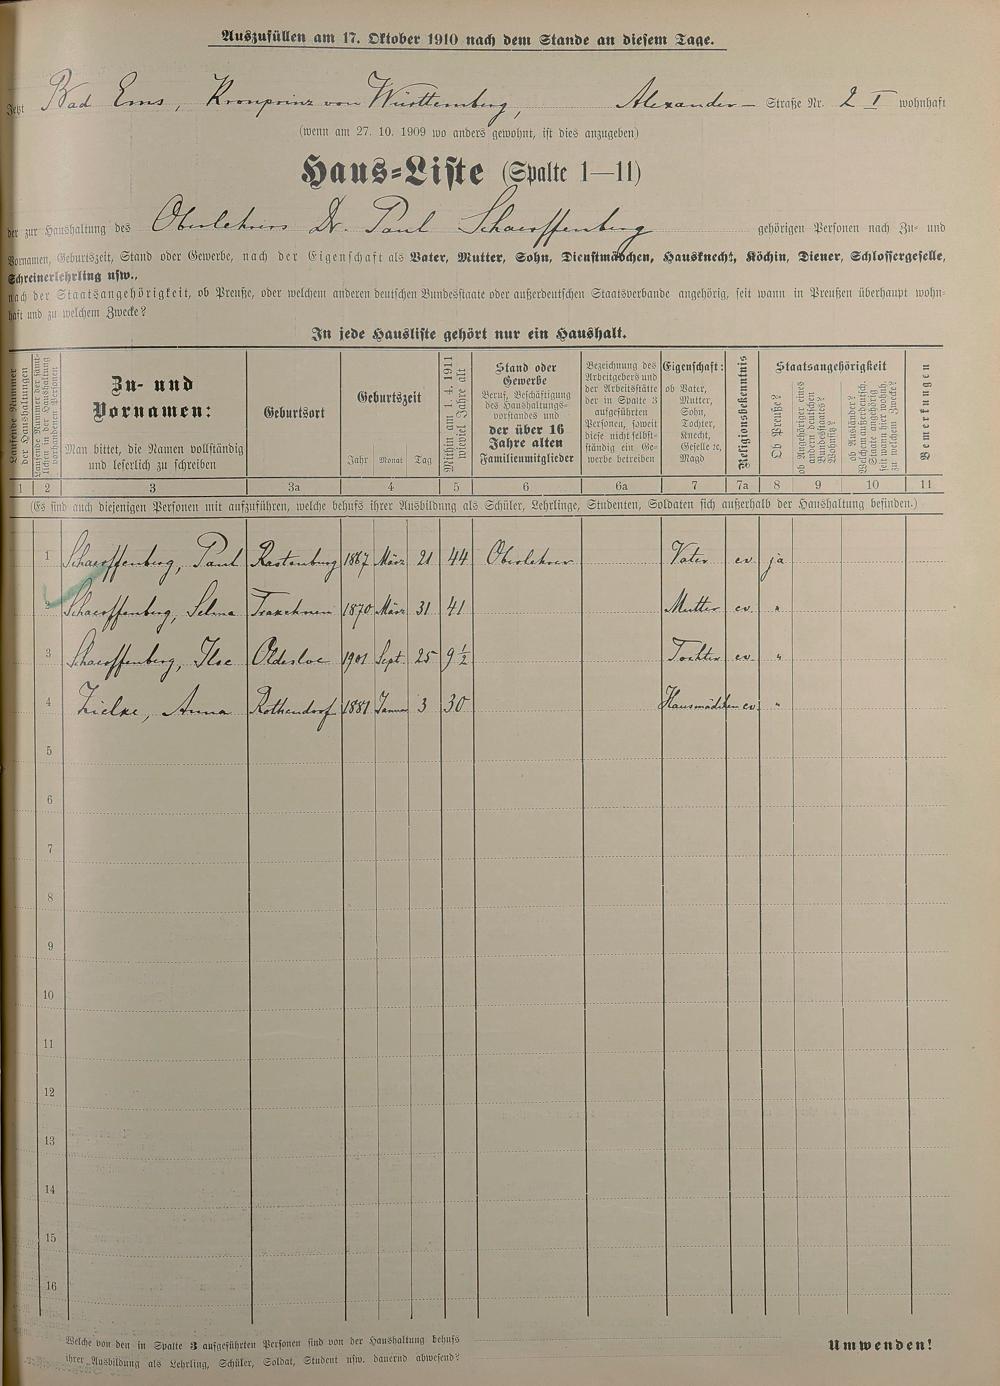 Auszufüllen am 17. Oktober 1910 nach dem Stande an diesem Tage.
Jetzt Bad Ems, Kronprinz von Württemberg, Alexander- Straße Nr. 2 I wohnhaft
(wenn am 27. 10. 1909 wo anders gewohnt, ist dies anzugeben)
Haus-Liste (Spalte 1—11)
der zur Haushaltung des Oberlehrers Dr. Paul Schaeffenberg gehörigen Personen nach Zu- und
Vornamen, Geburtszeit, Stand oder Gewerbe, nach der Eigenschaft als Vater, Mutter, Sohn, Dienstmädchen, Hausknecht, Köchin, Diener, Schlossergeselle,
Schreinerlehrling usw.,
nach der Staatsangehörigkeit, ob Preuße, oder welchem anderen deutschen Bundesstaate oder außerdeutschen Staatsverbande angehörig, seit wann in Preußen überhaupt wohn-
haft und zu welchem Zwecke?
In jede Hausliste gehört nur ein Haushalt.
Laufende Nummer
der Haushaltungen
Laufende Nummer der sämt-
lichen in der Haushaltung
vorhandenen Personen
Zu- und
Vornamen:
Man bittet, die Namen vollständig
und leserlich zu schreiben
Geburtsort
Geburtszeit
Jahr Monat Tag
Mithin am 1. 4. 1911
wieviel Jahre alt
Stand oder
Gewerbe
Beruf, Beschäftigung
des Haushaltungs-
vorstandes und
der über 16
Jahre alten
Familienmitglieder
Bezeichnung des
Arbeitgebers und
der Arbeitsstätte
der in Spalte 3
aufgeführten
Personen, soweit
diese nicht selbst-
ständig ein Ge-
werbe betreiben
Eigenschaft:
ob Vater,
Mutter,
Sohn,
Tochter,
Knecht,
Geselle ꝛc,
Magd
Religionsbekenntnis
Staatsangehörigkeit
Ob Preuße?
ob Angehöriger eines
andern deutschen
Bundesstaates?
Wohnsitz?
ob Ausländer?
Welchem außerdeutsch.
Staate angehörig
seit wann hier wohnh.
zu welchem Zwecke?
Bemerkungen
1 2 3 3a 4 5 6 6a 7 7a 8 9 10 11
(Es sind auch diejenigen Personen mit aufzuführen, welche behufs ihrer Ausbildung als Schüler, Lehrlinge, Studenten, Soldaten sich außerhalb der Haushaltung befinden.)
1 Schaeffenberg, Paul Rastenburg 1867 März 21 44 Oberlehrer Vater ev. ja
2 Schaeffenberg, Selma 1870 März 31 41 Mutter ev. "
3 Schaeffenberg, Ilse Oldesloe 1901 Sept. 25 9½ Tochter ev. "
4 Zielke, Anna Rothendorf 1881 Januar 3 30 Hausmädchen ev. "
5
6
7
8
9
10
11
12
13
14
15
16
Welche von den in Spalte 3 aufgeführten Personen sind von der Haushaltung behufs
ihrer Ausbildung als Lehrling, Schüler, Soldat, Student usw. dauernd abwesend?
Umwenden!